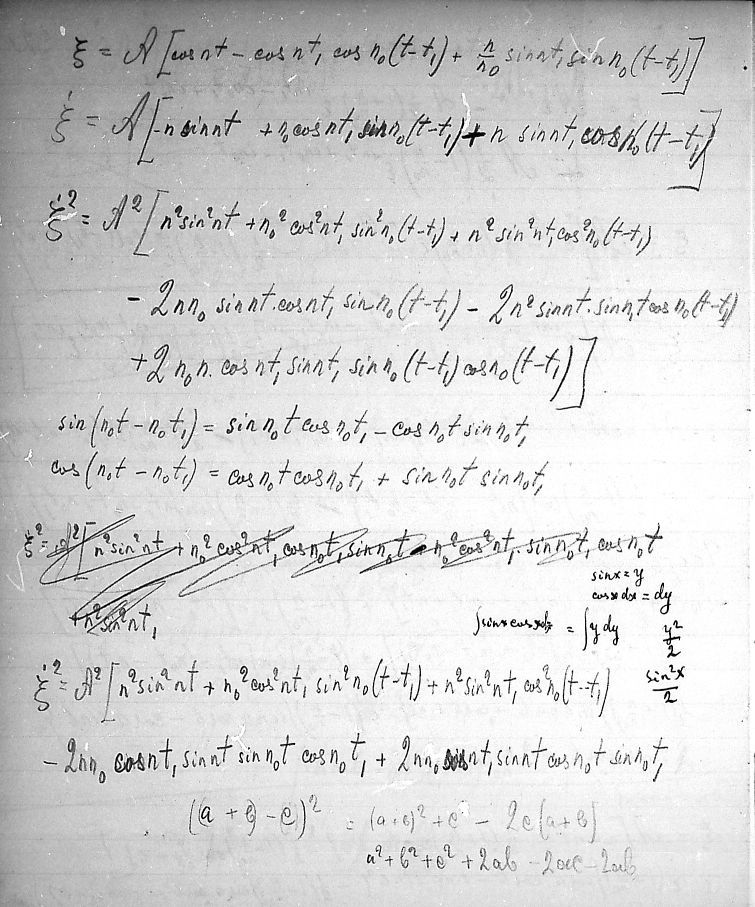 ξ = A [cos nt − cos nt₁ cos n₀(t−t₁) + n/n₀ sin nt₁ sin n₀(t−t₁)]
ξ̇ = A [−n sin nt + n₀ cos nt₁ sin n₀(t−t₁) + n sin nt₁ cos n₀(t−t₁)]
ξ̇² = A² [n² sin² nt + n₀² cos² nt₁ sin² n₀(t−t₁) + n² sin² nt₁ cos² n₀(t−t₁)
− 2nn₀ sin nt · cos nt₁ sin n₀(t−t₁) − 2n² sin nt · sin nt₁ cos n₀(t−t₁)
+ 2n₀n · cos nt₁ sin nt₁ sin n₀(t−t₁) cos n₀(t−t₁)]
sin(n₀t − n₀t₁) = sin n₀t cos n₀t₁ − cos n₀t sin n₀t₁
cos(n₀t − n₀t₁) = cos n₀t cos n₀t₁ + sin n₀t sin n₀t₁
ξ̇² = A² [n² sin² nt + n₀² cos² nt₁ cos n₀t₁ sin n₀t − n₀² cos² nt₁ · sin n₀t₁ cos n₀t
sin x = y
cos x dx = dy
+ n² sin² nt₁
∫ sin x cos x dx = ∫ y dy y²/2
ξ̇² = A² [n² sin² nt + n₀² cos² nt₁ sin² n₀(t−t₁) + n² sin² nt₁ cos² n₀(t−t₁)
sin² x/2
− 2nn₀ cos nt₁ sin nt sin n₀t cos n₀t₁ + 2nn₀ cos nt₁ sin nt cos n₀t sin n₀t₁
(a + b − c)² = (a+b)² + c² − 2c(a+b)
a² + b² + c² + 2ab − 2ac − 2ab